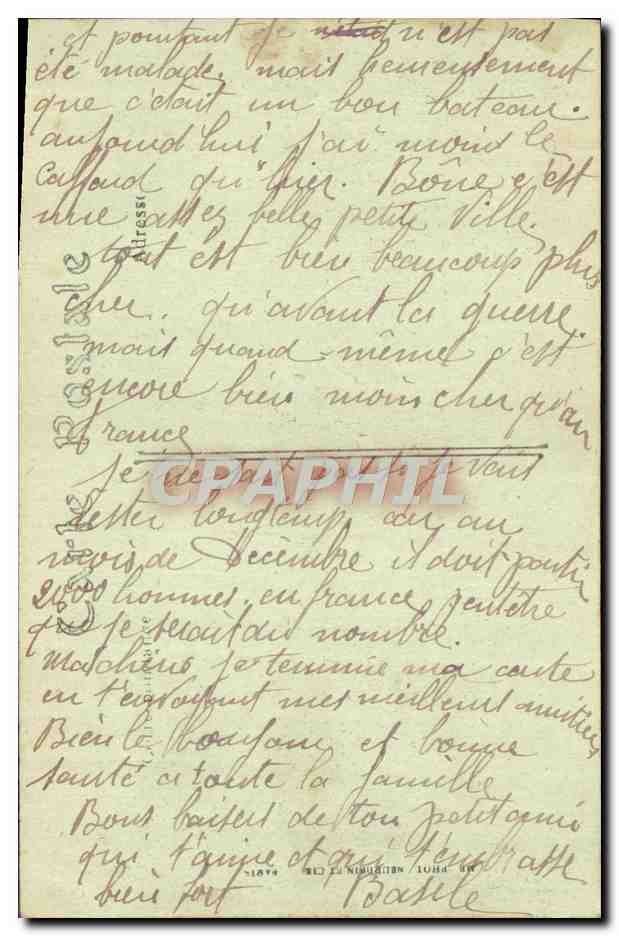 et pourtant je n'est pas
été malade. mais heureusement
que c'était un bon bateau.
aujourd'hui j'ai moins le
Caffard qu'hier. Bône c'est
une assez belle petite Ville.
tout est bien beaucoup plus
cher. qu'avant la guerre.
mais quand-même c'est
encore bien moin cher qu'an
france
je ne sait si je Vais
rester longtemp car au
mois de Decembre il doit partir
2000 hommes. en france peutêtre
que je serais du nombre.
je termine ma carte
en t'envoyant mes meilleurs amitiés
Bien le bonjour et bonne
santé a toute la famille
Bons baisers de ton petit ami
qui t'aime et qui t'embrasse
bien fort Basile
Carte Postale
Adresse
Correspondance
PHOT. NEURDEIN ET CIE PARIS
CPAPHIL